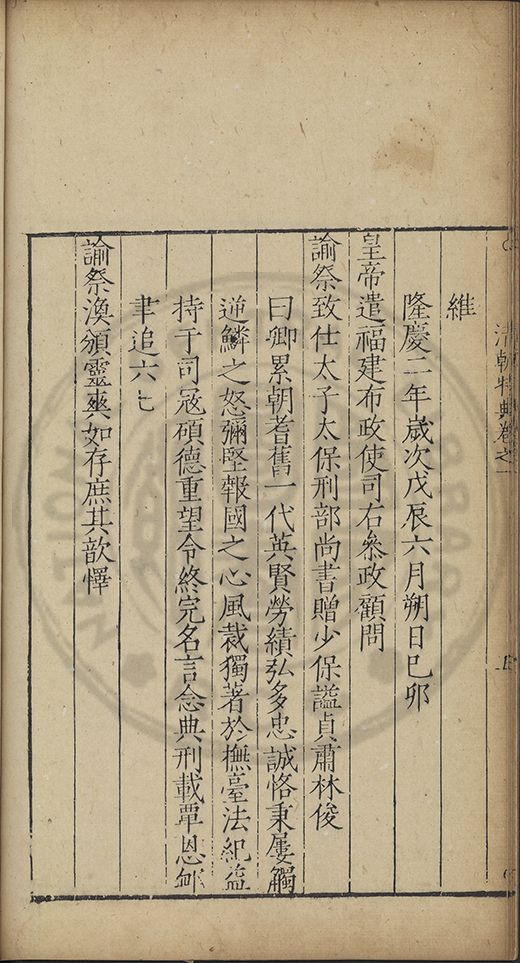 清朝特典卷之一
維
隆慶二年歲次戊辰六月朔日巳卯
皇帝遣福建布政使司右叅政顧問
諭祭致仕太子太保刑部尚書贈少保謚貞肅林俊
曰卿累朝耆舊一代英賢勞績弘多忠誠恪秉屢觸
逆鱗之怒彌堅報國之心風裁獨著於撫臺法紀益
持于司寇碩德重望令終完名言念典刑載覃恩卹
聿追六七
諭祭渙頒靈爽如存庶其歆懌